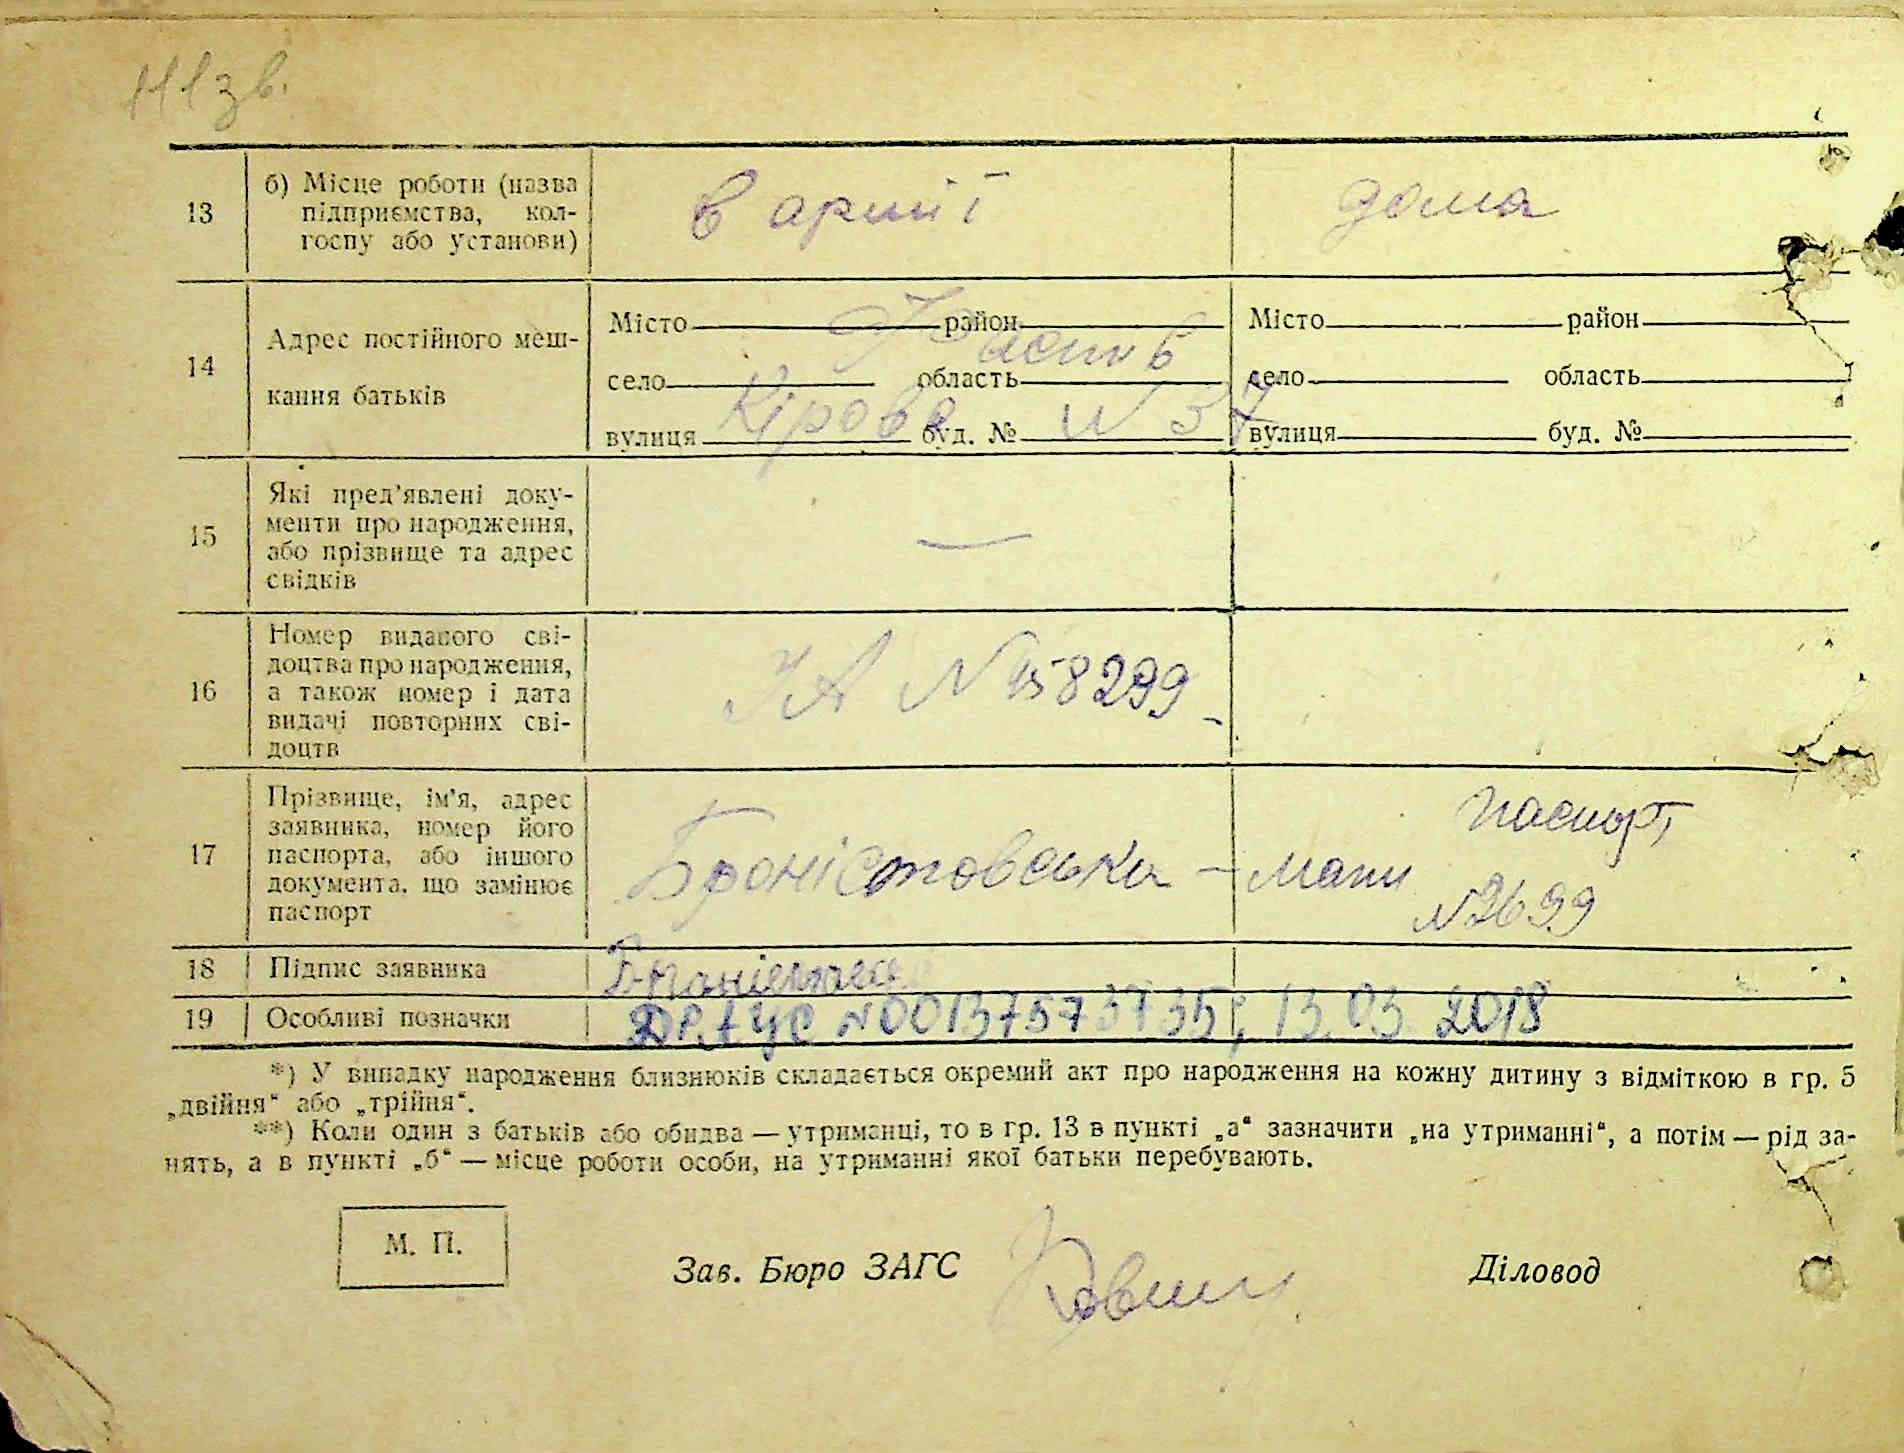 111 зв.
13
б) Місце роботи (назва
підприємства, кол-
госпу або установи)
в армії
дома
14
Адрес постійного меш-
кання батьків
Місто район
Фастів
село область
вулиця Кірова буд. № N 37
Місто район
село область
вулиця буд. №
15
Які пред'явлені доку-
менти про народження,
або прізвище та адрес
свідків
—
16
Номер виданого сві-
доцтва про народження,
а також номер і дата
видачі повторних сві-
доцтв
УА N 458299
17
Прізвище, ім'я, адрес
заявника, номер його
паспорта, або іншого
документа, що замінює
паспорт
Броністовська – мати
паспорт
N 2699
18
Підпис заявника
19
Особливі позначки
ДРАЦС N 00137573735; 13.03 2018
*) У випадку народження близнюків складається окремий акт про народження на кожну дитину з відміткою в гр. 5
„двійня“ або „трійня“.
**) Коли один з батьків або обидва — утриманці, то в гр. 13 в пункті „а“ зазначити „на утриманні“, а потім — рід за-
нять, а в пункті „б“ — місце роботи особи, на утриманні якої батьки перебувають.
М. П.
Зав. Бюро ЗАГС
Діловод